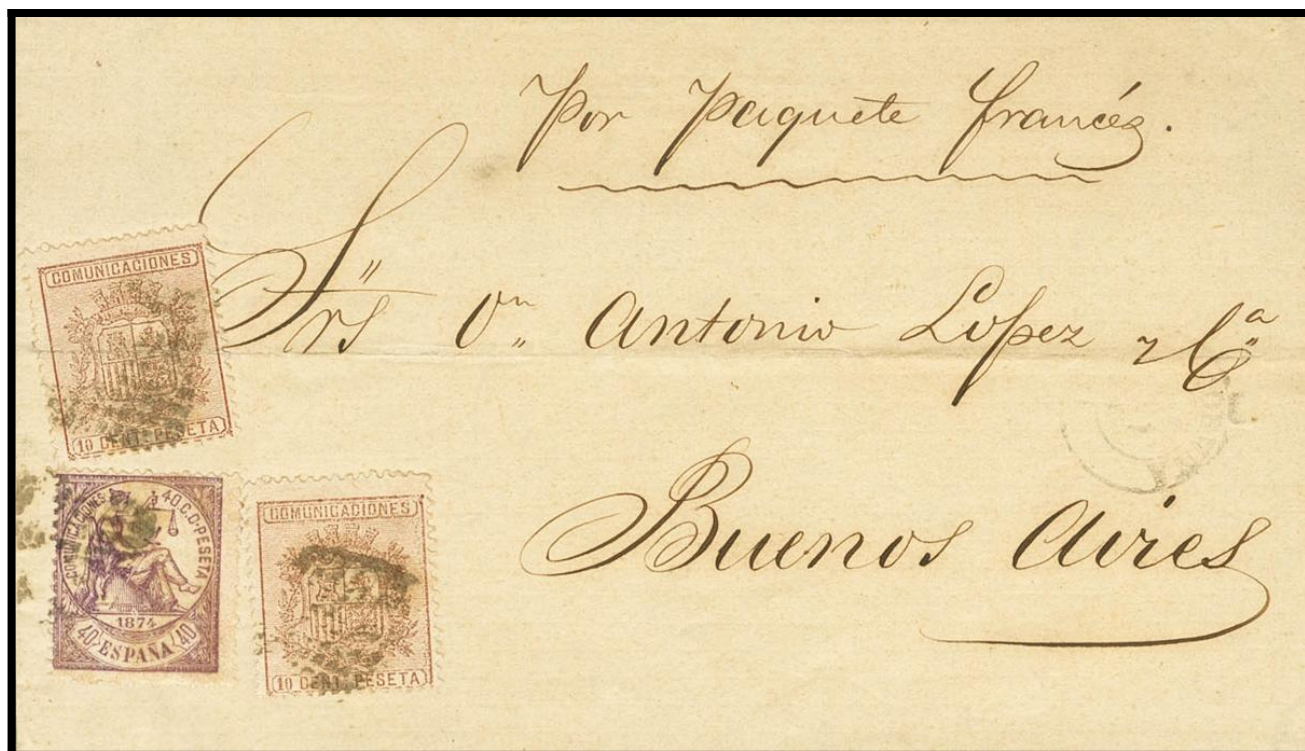 Por Paquete francés.
Srs Dn Antonio Lopez y Cª
Buenos Aires
COMUNICACIONES
10 CENT. PESETA
COMUNICACIONES 40 C. D PESETA
1874
40 ESPAÑA 40
COMUNICACIONES
10 CENT. PESETA